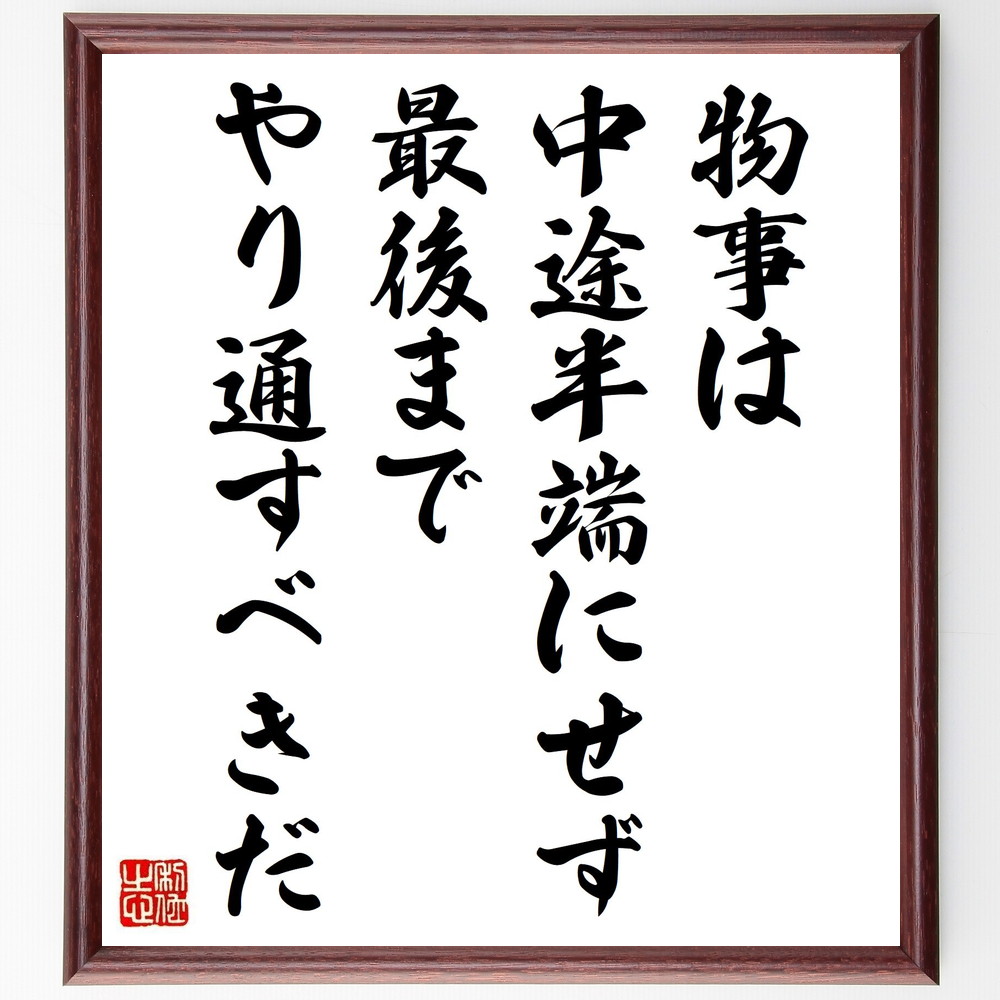 物事は
中途半端にせず
最後まで
やり通すべきだ